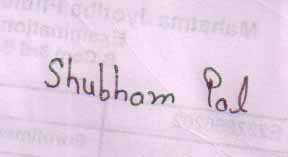 Shubham Pal